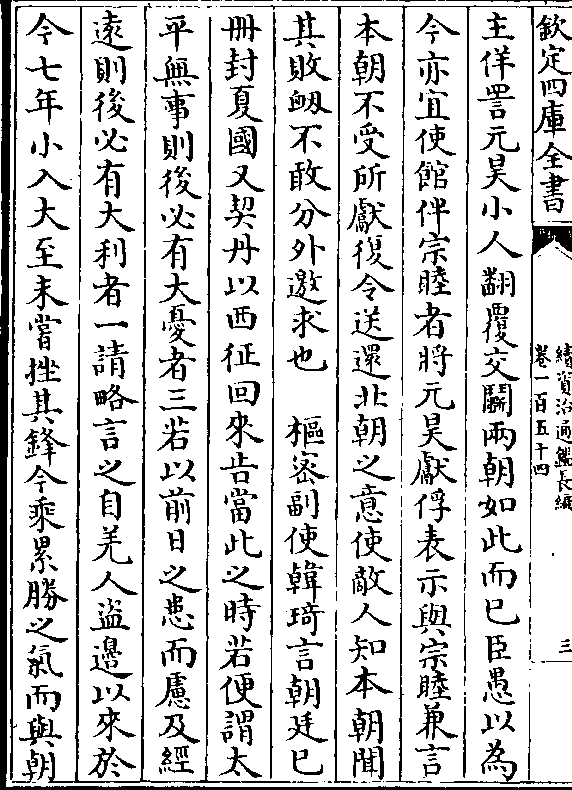 欽定四庫全書
續資治通鑑長編
卷一百五十四
三
主佯詈元昊小人翻覆交鬬兩朝如此而已臣愚以為
今亦宜使館伴宗睦者將元昊獻俘表示與宗睦兼言
本朝不受所獻復令送還北朝之意使敵人知本朝聞
其敗衂不敢分外邀求也　樞密副使韓琦言朝廷已
冊封夏國又契丹以西征回來告當此之時若便謂太
平無事則後必有大憂者三若以前日之患而慮及經
遠則後必有大利者一請略言之自羌人盜邊以來於
今七年小入大至未嘗挫其鋒今乘累勝之氣而與朝